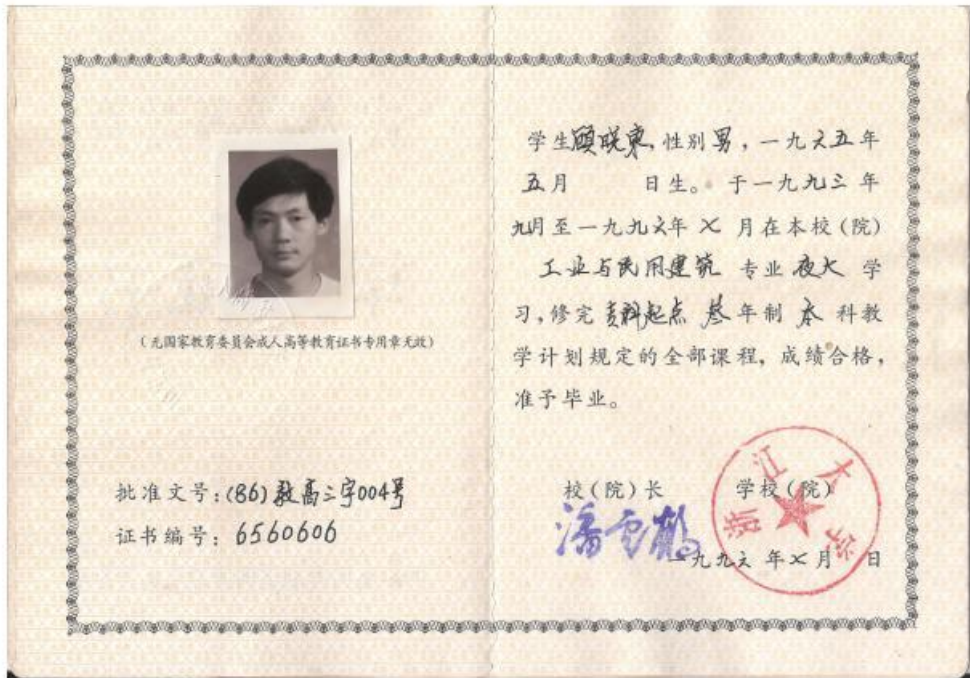 (无国家教育委员会成人高等教育证书专用章无效)
批准文号:(86)教高三字004号
证书编号:6560606
学生顾联东,性别男,一九六五年
五月 日生。于一九九三年
九月至一九九六年七月在本校(院)
工业与民用建筑 专业 夜大 学
习,修完专科起点 叁年制 本 科教
学计划规定的全部课程,成绩合格,
准予毕业。
校(院)长 学校(院)
潘云鹤
浙江大学
一九九六年七月 日